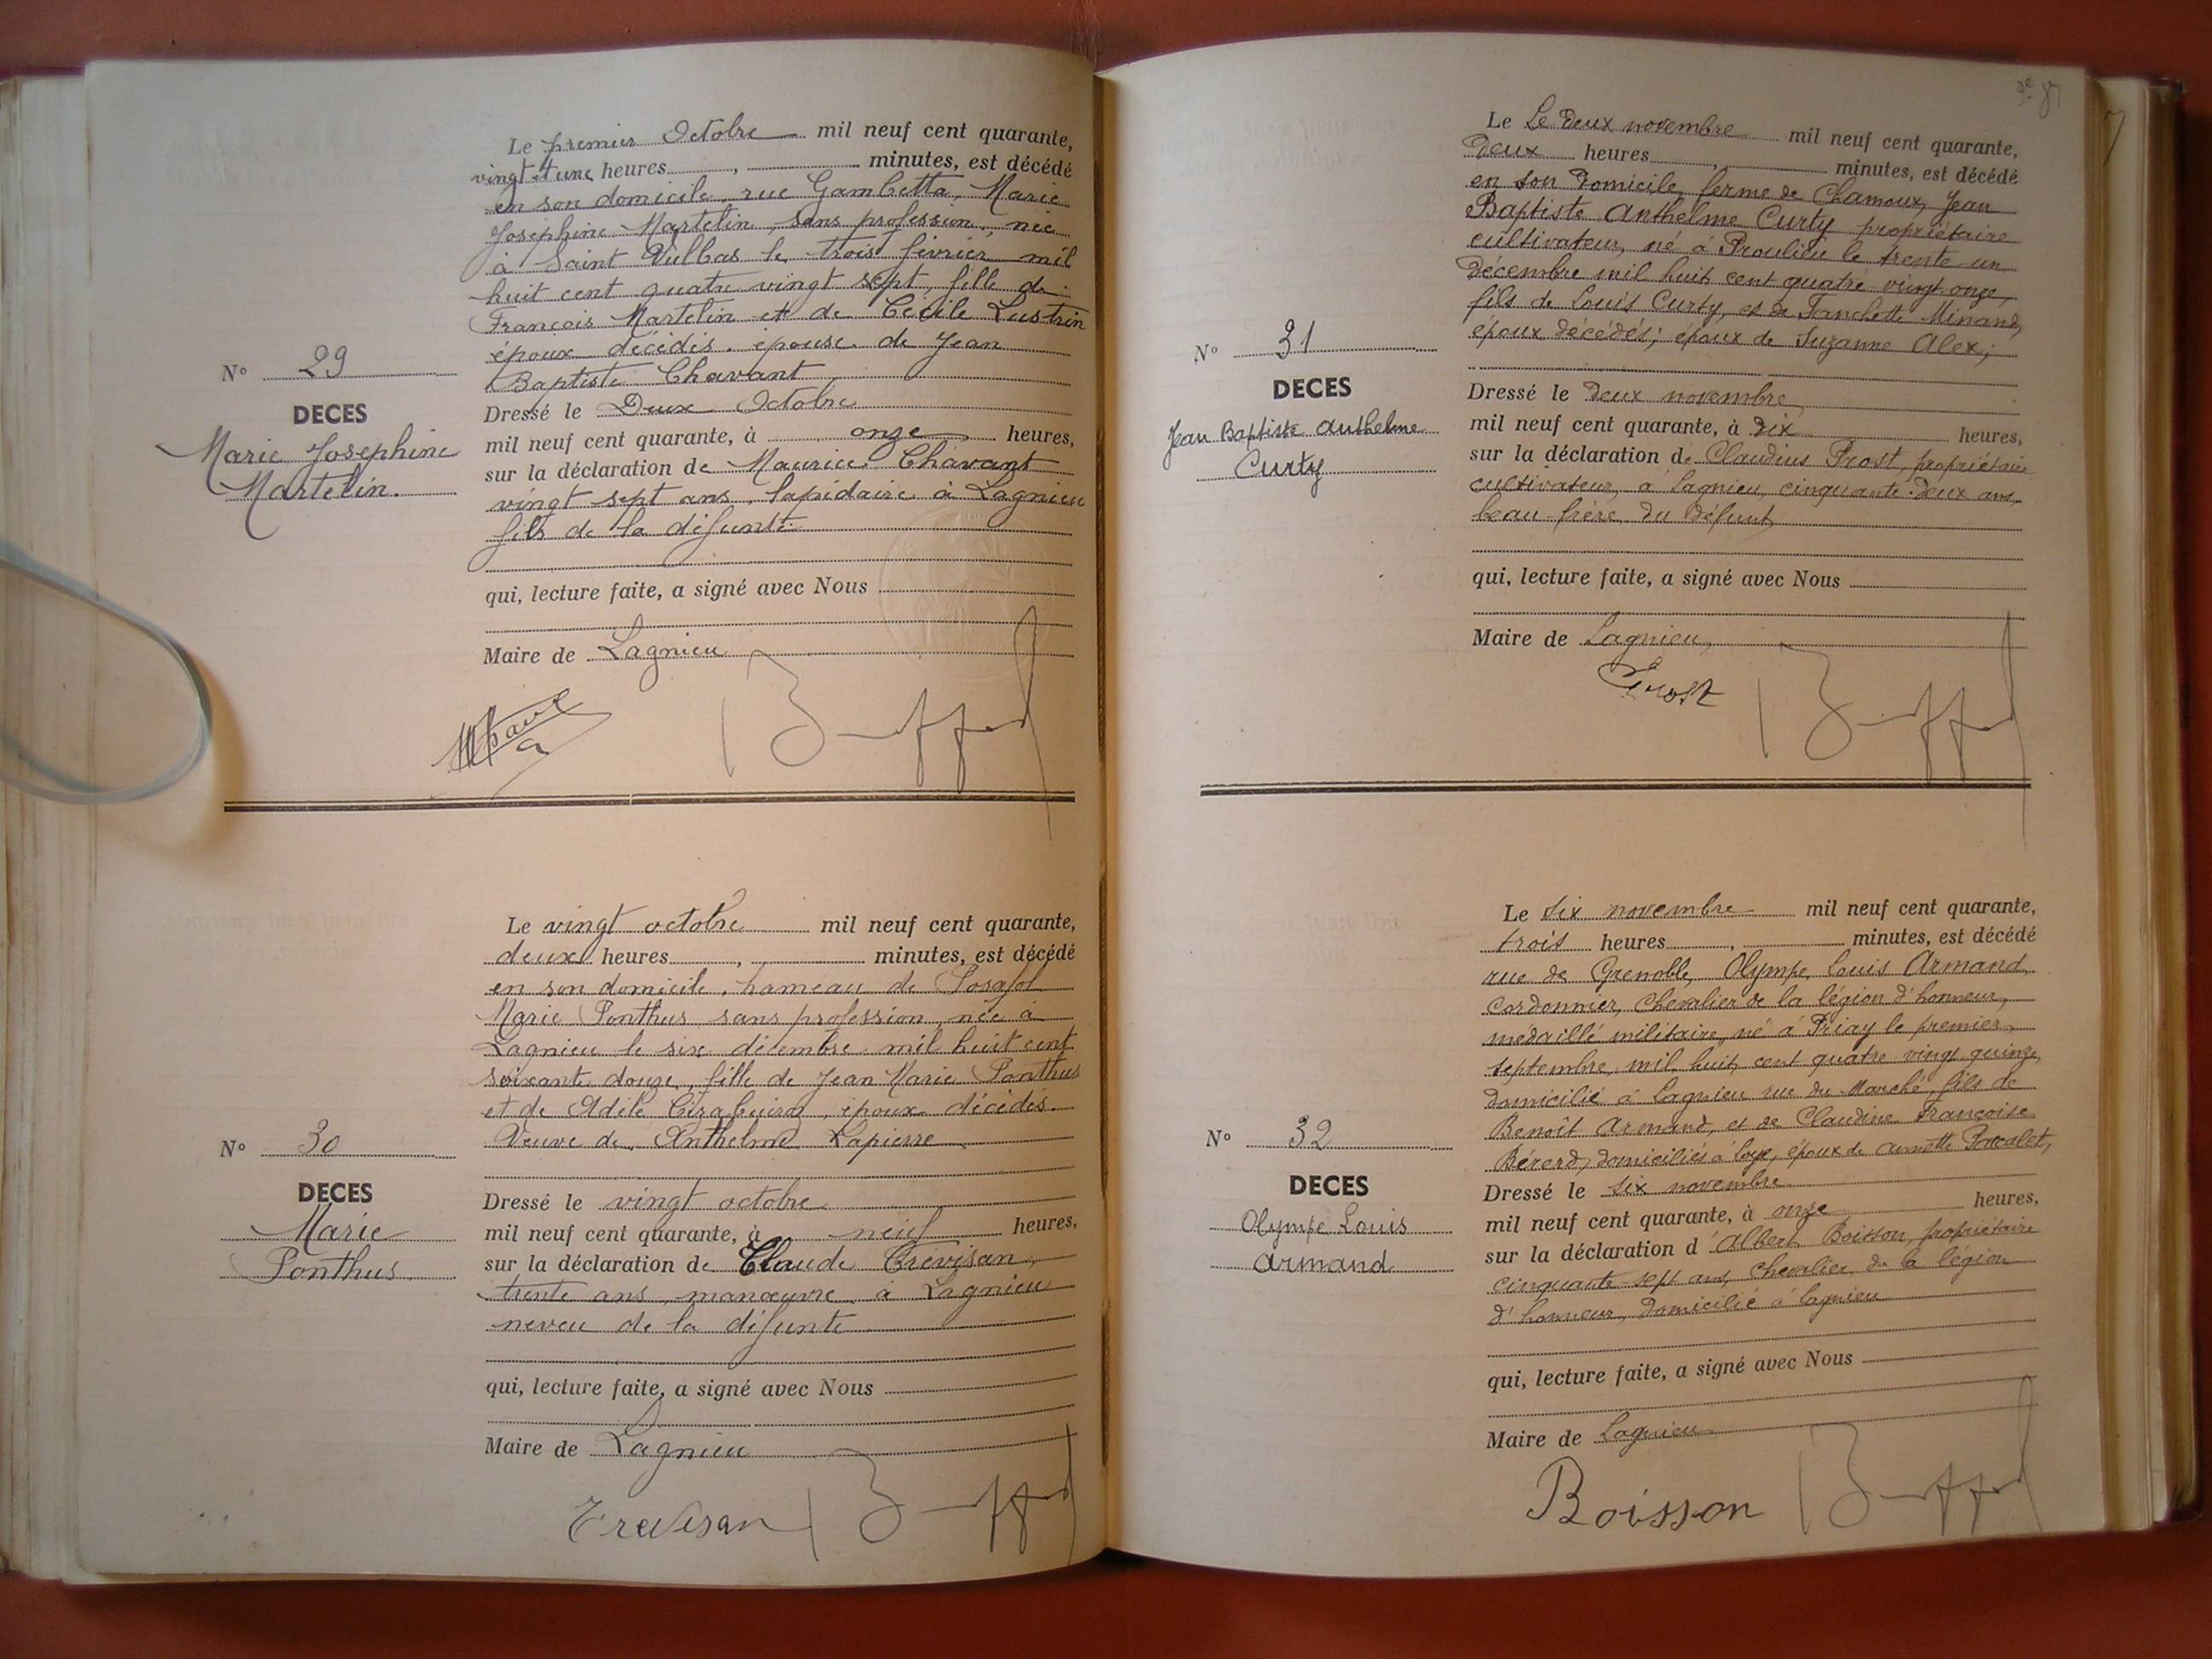 Le premier Octobre mil neuf cent quarante,
vingt et une heures, minutes, est décédé
en son domicile, rue Gambetta, Marie
Josephine Martelin, sans profession, née
à Saint Vulbas le trois février mil
huit cent quatre vingt sept, fille de
François Martelin et de Cécile Lustrin
époux décédés. épouse de Jean
Baptiste Chavant
N° 29
DECES
Marie Josephine
Martelin.
Dressé le Deux Octobre
mil neuf cent quarante, à onze heures,
sur la déclaration de Maurice Chavant
vingt sept ans, lapidaire à Lagnieu
fils de la défunte.
qui, lecture faite, a signé avec Nous
Maire de Lagnieu
Le vingt octobre mil neuf cent quarante,
deux heures, minutes, est décédé
en son domicile, hameau de Posafol
Marie Ponthus sans profession, née à
Lagnieu le six décembre mil huit cent
soixante douze, fille de Jean Marie Ponthus
et de Adèle, époux décédés.
Veuve de Anthelme Lapierre
N° 30
DECES
Marie
Ponthus
Dressé le vingt octobre
mil neuf cent quarante, à neuf heures,
sur la déclaration de Claude Trévisan,
trente ans, manœuvre à Lagnieu
neveu de la défunte
qui, lecture faite, a signé avec Nous
Maire de Lagnieu
Trevisan
Le Le deux novembre mil neuf cent quarante,
Deux heures, minutes, est décédé
en son domicile, ferme de Chamoux, Jean
Baptiste Anthelme Curty propriétaire
cultivateur, né à Proulieu le trente un
décembre mil huit cent quatre vingt onze,
fils de Louis Curty, et de Fanchette Minand,
époux décédés; époux de Suzanne Alex;
N° 31
DECES
Jean Baptiste Anthelme
Curty
Dressé le deux novembre
mil neuf cent quarante, à dix heures,
sur la déclaration de Claudius Prost, propriétaire
cultivateur, à Lagnieu, cinquante deux ans,
beau-frère du défunt,
qui, lecture faite, a signé avec Nous
Maire de Lagnieu,
Prost
Le six novembre mil neuf cent quarante,
trois heures, minutes, est décédé
rue de Grenoble, Olympe, Louis Armand
cordonnier, chevalier de la légion d'honneur,
medaillé militaire, né à Priay le premier
septembre, mil huit cent quatre vingt quinze,
domicilié à Lagnieu rue du Marché, fils de
Benoit Armand, et de Claudine Françoise
Bérerd, domiciliés à Loye, époux de Annette Pascalet,
N° 32
DECES
Olympe Louis
Armand
Dressé le six novembre
mil neuf cent quarante, à onze heures,
sur la déclaration d'Albert Boisson, propriétaire
cinquante sept ans, chevalier de la légion
d'honneur, domicilié à Lagnieu
qui, lecture faite, a signé avec Nous
Maire de Lagnieu
Boisson